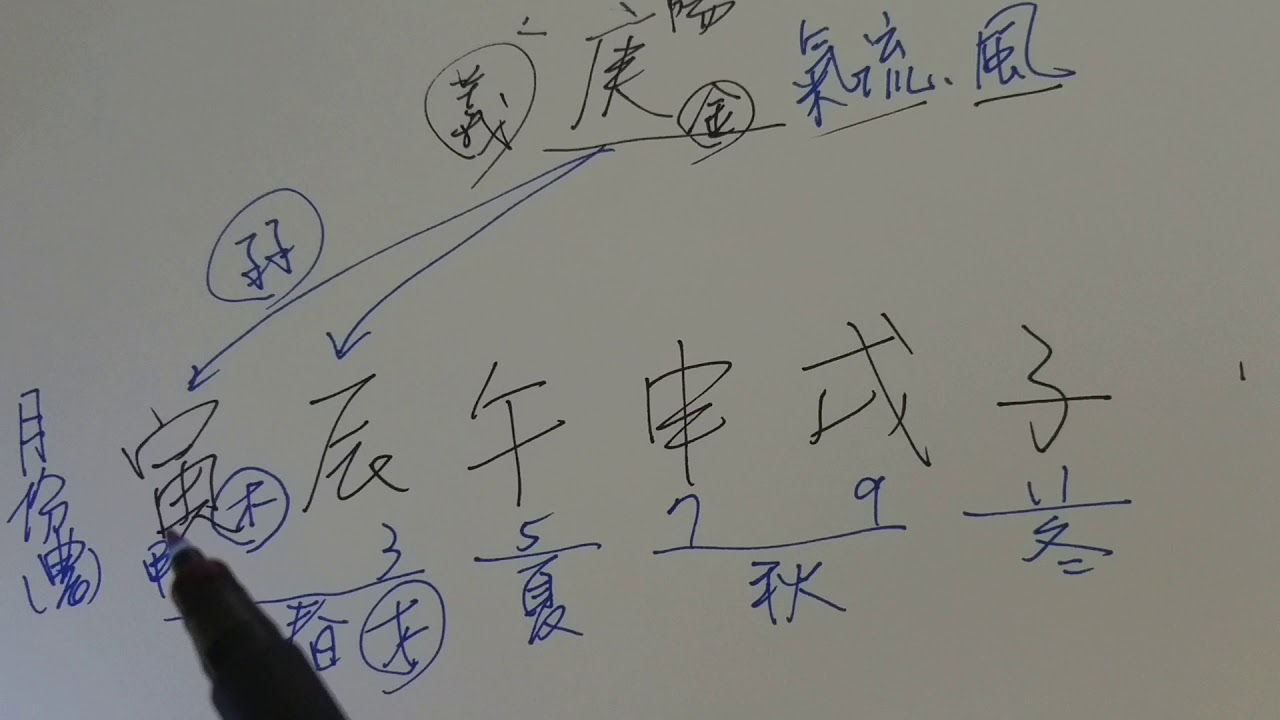 陽
義 庚 金 氣流、風
孖
寅 辰 午 申 戌 子
木
月份(農) 3 5 7 9 11
春 木 夏 秋 冬